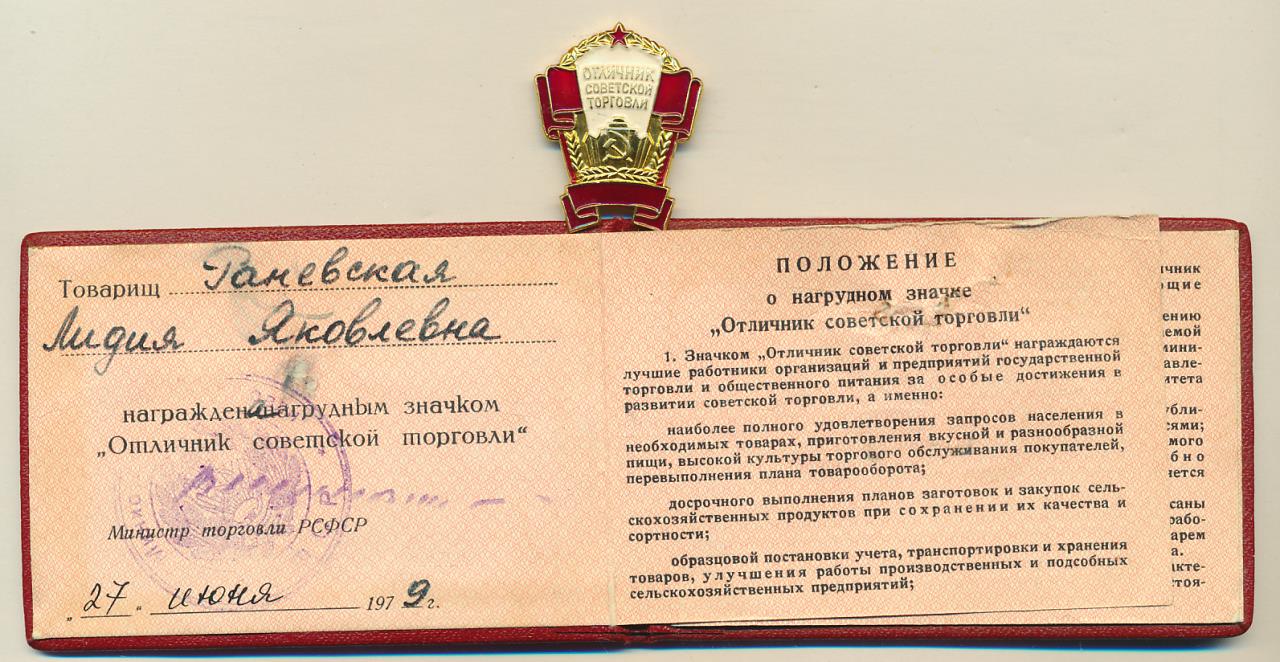 ОТЛИЧНИК
СОВЕТСКОЙ
ТОРГОВЛИ
Товарищ Раневская
Лидия Яковлевна
награждена нагрудным значком
„Отличник советской торговли“
Министр торговли РСФСР
„27“ июня 1979 г.
ПОЛОЖЕНИЕ
о нагрудном значке
„Отличник советской торговли“
1. Значком „Отличник советской торговли“ награждаются
лучшие работники организаций и предприятий государственной
торговли и общественного питания за особые достижения в
развитии советской торговли, а именно:
наиболее полного удовлетворения запросов населения в
необходимых товарах, приготовления вкусной и разнообразной
пищи, высокой культуры торгового обслуживания покупателей,
перевыполнения плана товарооборота;
досрочного выполнения планов заготовок и закупок сель-
скохозяйственных продуктов при сохранении их качества и
сортности;
образцовой постановки учета, транспортировки и хранения
товаров, улучшения работы производственных и подсобных
сельскохозяйственных предприятий;